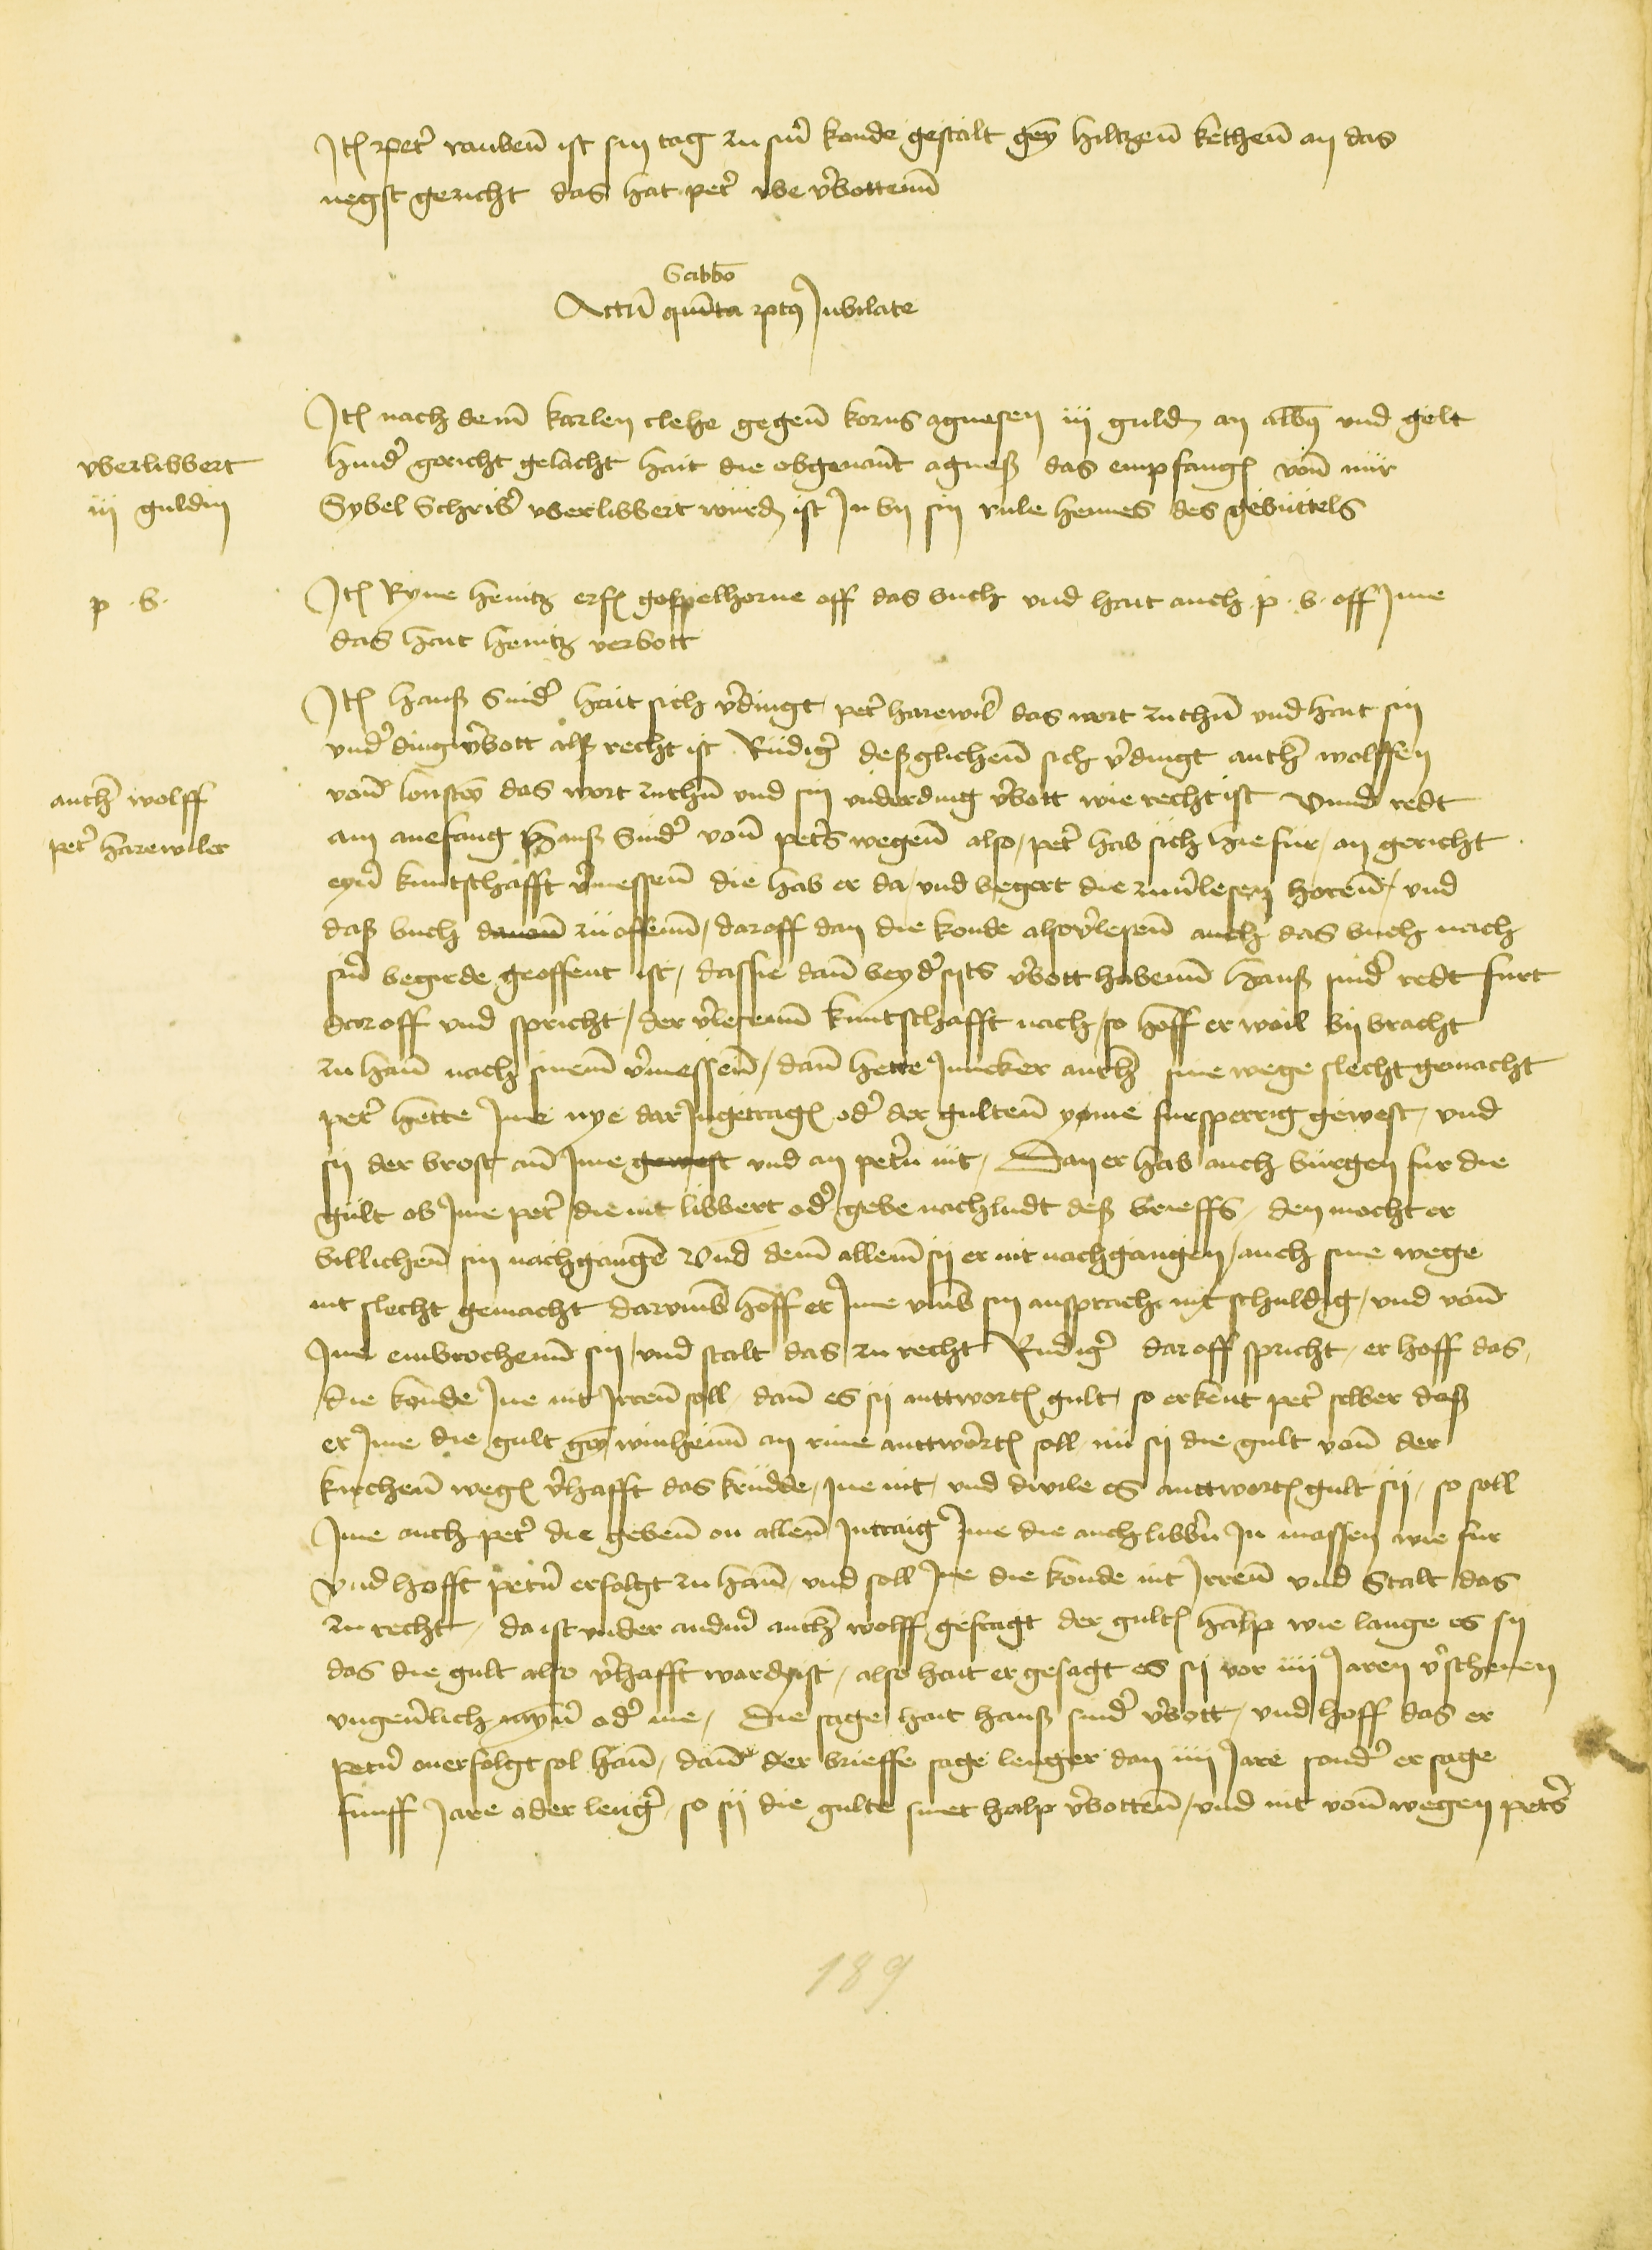 Jtem Peter rauben ist sin tag zu siner konde gestalt gen hiltzen kethen an das
negst gericht das hat peter vbe verbottenn
Sabbo
Actum quinta post Jubilate
Jtem nach dem karlen clehe gegen korns agnesen iij guld an albus vnd gelt
hinder gericht gelacht hait die obgenant agneß das empfangen von mir
Sybel Schriber vberlibbert wurden ist Jn by sin rule hennes des gebuttels
vberlibbert
iij guldin
Jtem Ryne hentz erf gospelhorne off das buch vnd hait auch p. b. off Jme
das hait hentz verbott
p. b.
Jtem hanß Snider hait sich verdingt peter harewiler das wort zuthun vnd hait sin
vnderding verbott alß recht ist Rudiger deßglichen sich verdingt anthis wolffen
von das wort zuthun vnd sin vnderding verbott wie recht ist Vnnd redt
anthis wolff
peter harewiler
am anefang Hanß Snider von peters wegen also / peter hab sich hiefur / an gericht
eyner kuntschafft vermessen die hab er da / vnd begert die zuuerlesen horen / vnd
daß buch dauon zu offenn / daroff dan die konde also verlesen auch das buch nach
siner begirde geoffent ist / dassie dann beyder sijts verbott habenn hanß snider redt furt
daroff vnd spricht / der verlesenn kuntschafft nach / so hoff er woil bij bracht
zu han nach sinem vermessen / dan hette Juncker anthis sine wege slecht gemacht
peter hette Jme nye dar Jngetragen oder der gulten yme fursperrig gewest / vnd
sij der brost an Jme gewest vnd an petern nit / Dan er hab auch burgen fur die
gult ob Jme peter die nit libbert oder gebe nachludt deß brieffs / den mocht er
billichen sin nachgangen Vnd dem allem sij er nit nachgangen / auch sine wege
nit slecht gemacht darvmb hoff er Jme vmb sin ansprach nit schuldig / vnd von
Jme embrochenn sin / vnd stalt das zu recht Rudiger daroff spricht / er hoff das
die konde Jne nit Jrren soll / dan es sij anttworten gult / so erkent peter selber daß
er Jme die gult gen winheim an rine anttworten soll / nu sij die gult von der
kirchen wegen verhafft das krudde / Jne nit / vnd diwile es anttworten gult sij / so soll
Jme auch peter die geben on allen Jntraig Jme die auch libbern Jn massen wie fur
Vnd hofft petern erfolgt zu han / vnd soll Jne die konde nit Jrren vnd Stalt das
zu recht / da ist vnder andern anthis wolff gefragt der gulten halp wie lange es sij
das die gult also verhafft warden ist / also hait er gesagt es sij vor iiij Jaren verschenen
vngeuerlich myner oder me / Die sage hait hanß snider verbott / vnd hoff das er
petern onerfolgt sol han / dan der brieffe sage lenger dan iiij Jare sonder er sage
funff Jare oder lenger / so sij die gulte sinet halp verbotten / vnd nit von wegen peters
189